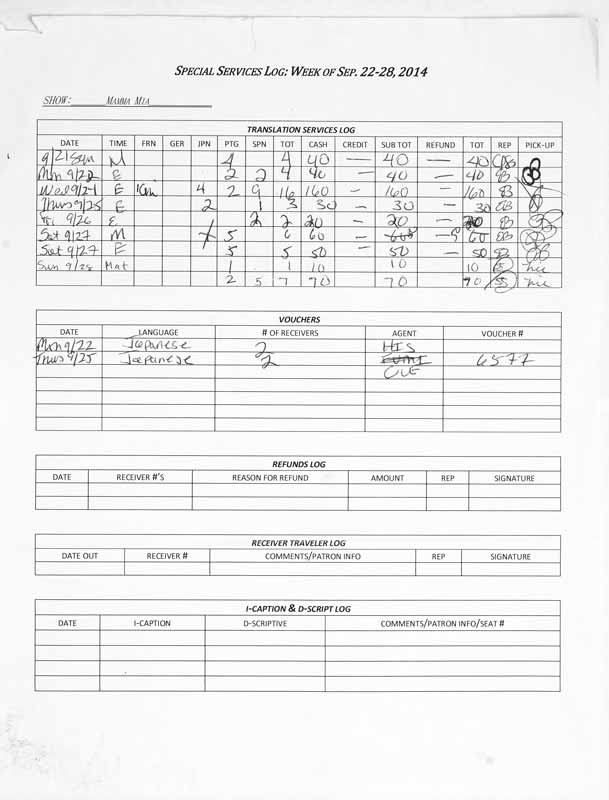 SPECIAL SERVICES LOG: WEEK OF SEP. 22-28, 2014
SHOW: MAMMA MIA
TRANSLATION SERVICES LOG
DATE TIME FRN GER JPN PTG SPN TOT CASH CREDIT SUB TOT REFUND TOT REP PICK-UP
9/21 Sun M 4 4 40 — 40 — 40
Mon 9/22 E 2 2 4 40 — 40 — 40 EB
Wed 9/24 E 4 2 9 16 160 — 160 — 160 EB
Thurs 9/25 E 2 1 3 30 — 30 — 30 EB
9/26 E 2 2 20 — 20 — 20 EB
Sat 9/27 M 5 6 60 — 60 — 60 EB
Sat 9/27 E 5 5 50 — 50 — 50 EB
Sun 9/28 Mat 1 1 10 10 10
2 5 7 70 70 70
VOUCHERS
DATE LANGUAGE # OF RECEIVERS AGENT VOUCHER #
Mon 9/22 Japanese 2 HIS
Thurs 9/25 Japanese 2 6577
REFUNDS LOG
DATE RECEIVER #'S REASON FOR REFUND AMOUNT REP SIGNATURE
RECEIVER TRAVELER LOG
DATE OUT RECEIVER # COMMENTS/PATRON INFO REP SIGNATURE
I-CAPTION & D-SCRIPT LOG
DATE I-CAPTION D-SCRIPTIVE COMMENTS/PATRON INFO/SEAT #